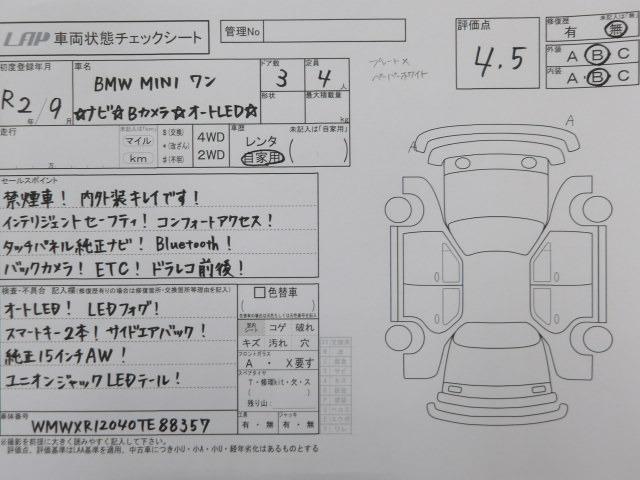 LAP 車両状態チェックシート
管理No
評価点
4.5
修復歴
未記入は「無」
有 無
外装
A B C
内装
A B C
初度登録年月
R2/9
年 月
車名
BMW MINI ワン
☆ナビ☆Bカメラ☆オートLED☆
ドア数
3
定員
4人
形状
最大積載量
kg
プレートX
ペーパーホワイト
走行
万
未記入は「km」
マイル
km
$(交換)
*(改ざん)
#(不明)
4WD
2WD
車歴
未記入は「自家用」
レンタ
自家用
( )
A
A
セールスポイント
禁煙車! 内外装キレイです!
インテリジェントセーフティ! コンフォートアクセス!
タッチパネル純正ナビ! Bluetooth!
バックカメラ! ETC! ドラレコ前後!
検査・不具合 記入欄(修復歴有りの場合は修復箇所・交換箇所等理由を記入)
オートLED! LEDフォグ!
スマートキー2本! サイドエアバック!
純正15インチAW!
ユニオンジャックLEDテール!
色替車
( )
コゲ 破れ
キズ 汚れ 穴
フロントガラス
A ・ X要す
スペアタイヤ
T・修理kit・欠・ス
( )
残り山:
工具
有・無
ジャッキ
有・無
車体番号
WMWXR12040TE88357
※撮影を前提に大きく読みやすく記入して下さい。
評価点、評価基準はLAA基準を適用、中古車につき小U・小A・小U・経年劣化はあるものとする